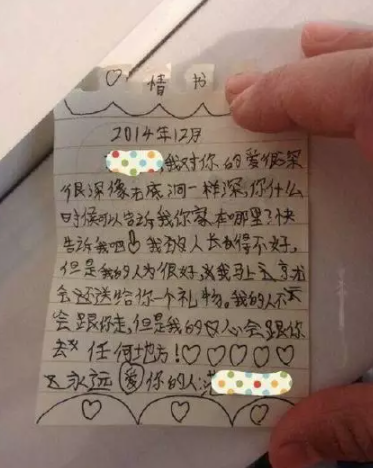 ♡情书
2014年12月
我对你的爱很深
很深像无底洞一样深,你什么
时候可以告诉我你家在哪里?快
告诉我吧!我本人长得不好,
但是我的人为很好 我马上
会还送给你一个礼物。我的人不
会跟你走,但是我的心会跟你
去 任何地方!♡♡♡♡♡
永远爱你的人: